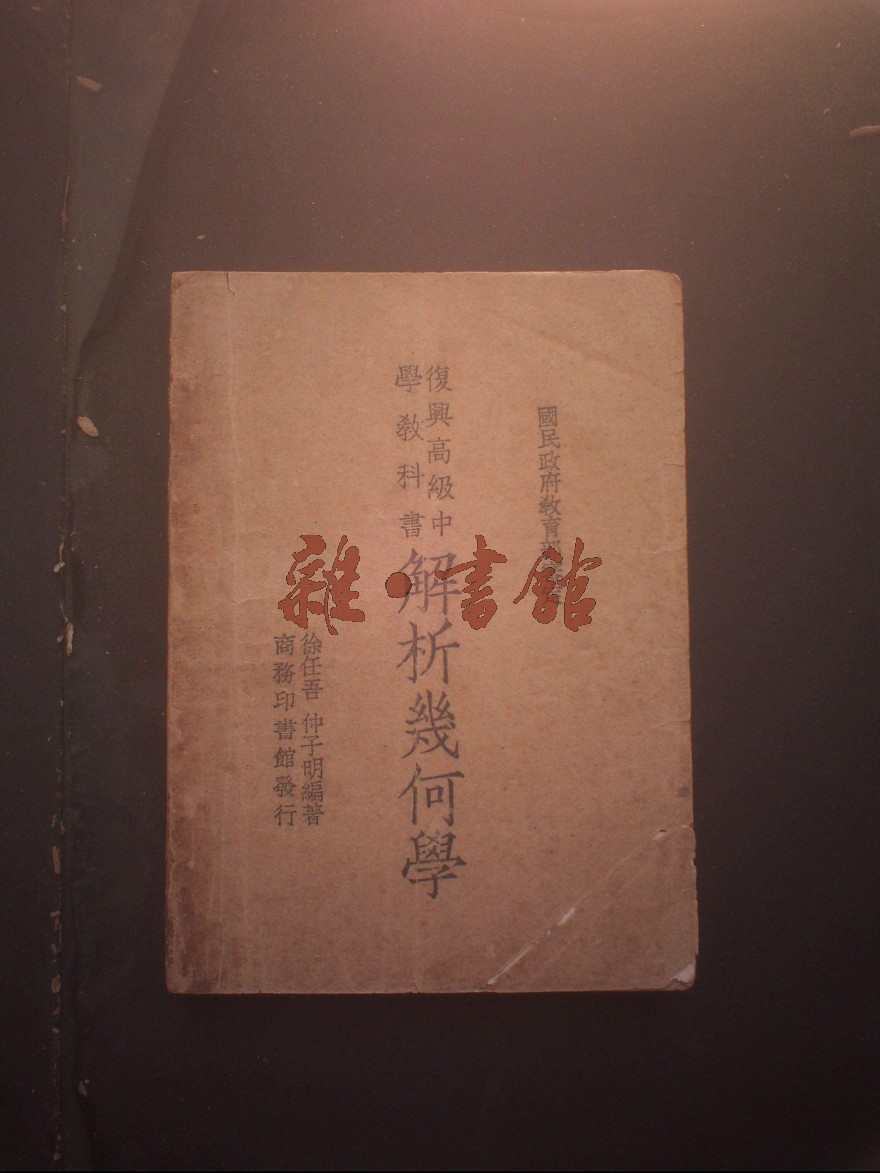 國民政府教育部
復興高級中
學教科書
解析幾何學
徐任吾 仲子明編著
商務印書館發行
雜·書館